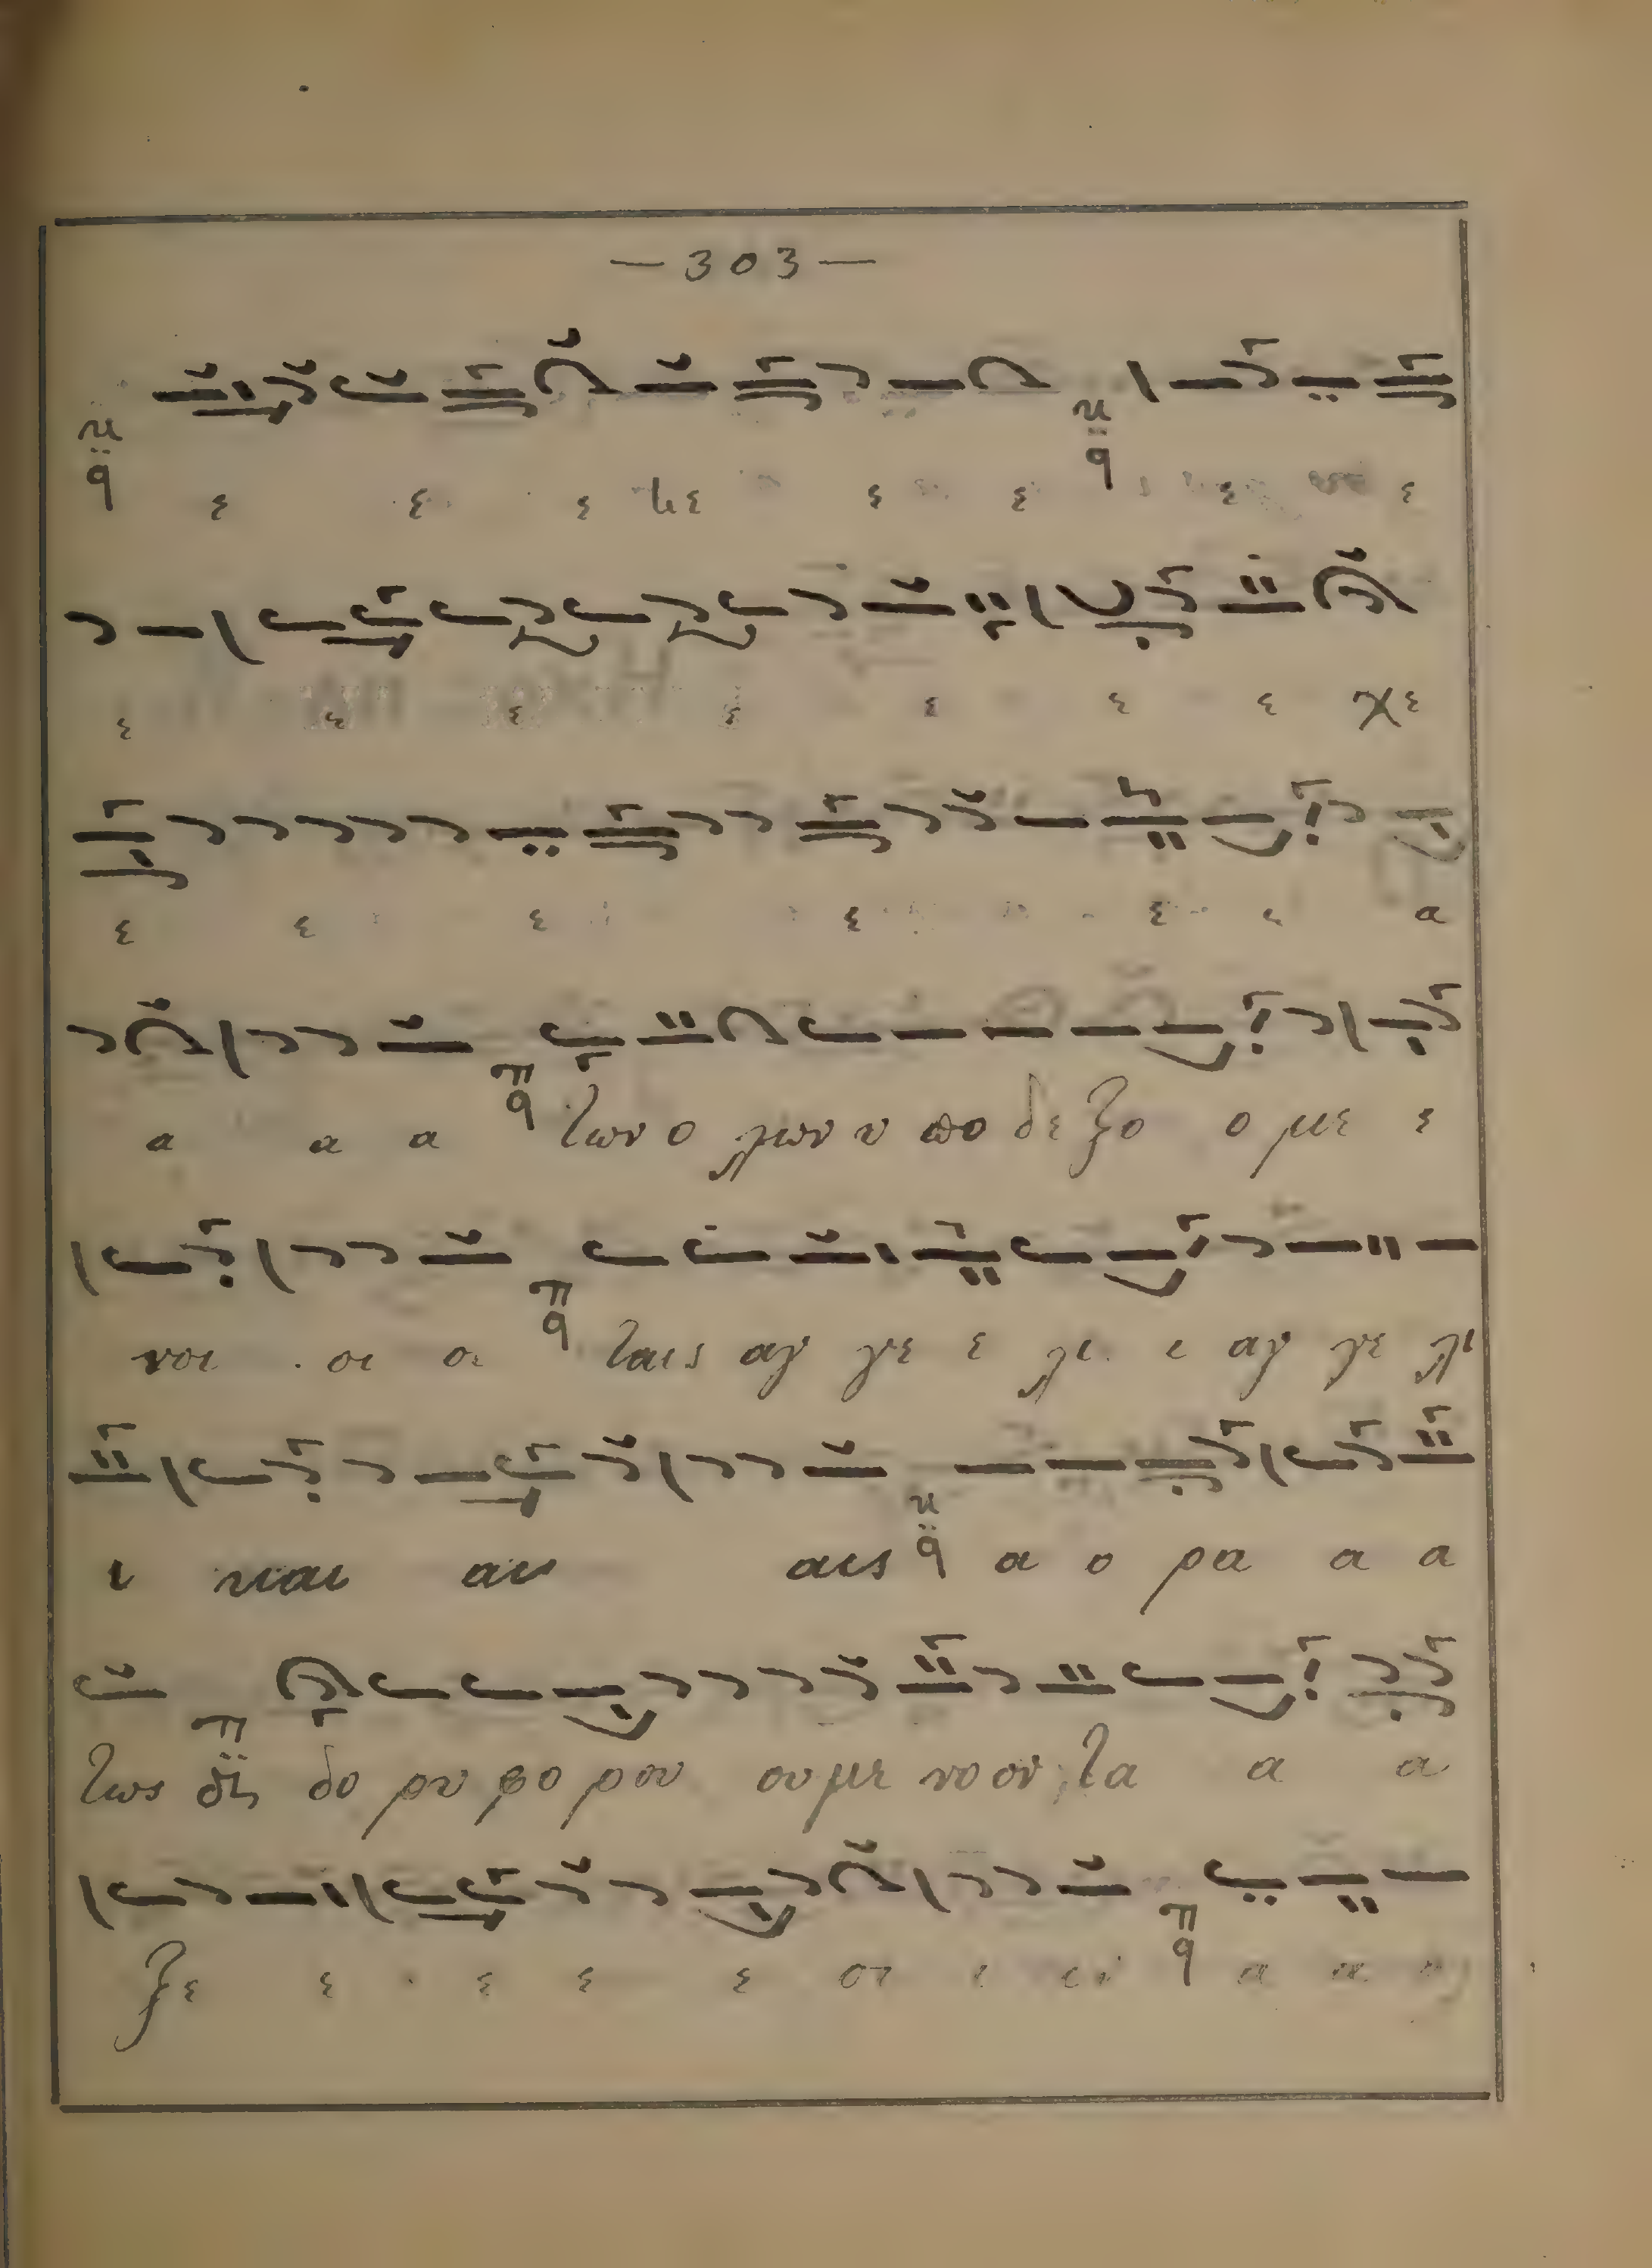 — 303 —
ε ε ε με ε ε ε ε
ε ε ε ε ε ε ε χε
ε ε ε ε ε α
α α α των ο λων υ πο δε ξο ο με ε
νοι οι οι ταις αγ γε ε λι ι αγ γε λι
ι και αις αις α ο ρα α α
τως δη δο ρυ φο ρου ου με νον τα α α
ξε ε ε ε ε σι ι ιν α α